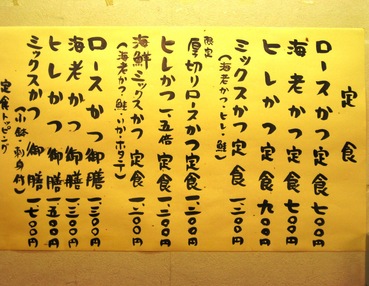 定食
ロースかつ定食 七〇〇円
海老かつ定食 七〇〇円
ヒレかつ定食 九〇〇円
ミックスかつ定食 一、二〇〇円
(海老かつ・ヒレ・鮭)
限定
厚切りロースかつ定食 一、二〇〇円
ヒレかつ一.五倍定食 一、二〇〇円
海鮮ミックスかつ定食 一、二〇〇円
(海老かつ・鮭・いか・ホタテ)
ロースかつ御膳 一、三〇〇円
海老かつ御膳 一、三〇〇円
ヒレかつ御膳 一、五〇〇円
ミックスかつ御膳 一、七〇〇円
(小鉢・刺身付)
定食トッピング